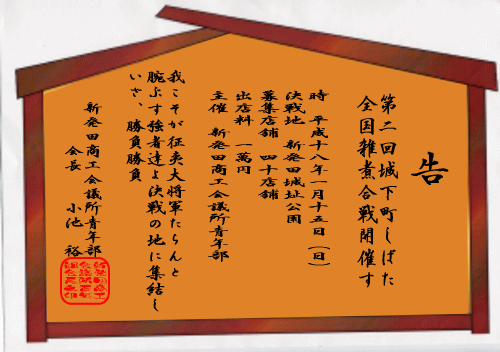 告
第二回城下町しばた
全国雑煮合戦開催す
時 平成十八年一月十五日（日）
決戦地 新発田城址公園
募集店舗 四十店舗
出店料 一萬円
主催 新発田商工会議所青年部
我こそが征夷大将軍たらんと
腕ぶす強者達よ決戦の地に集結し
いざ、勝負勝負
新発田商工会議所青年部
会長 小池 裕